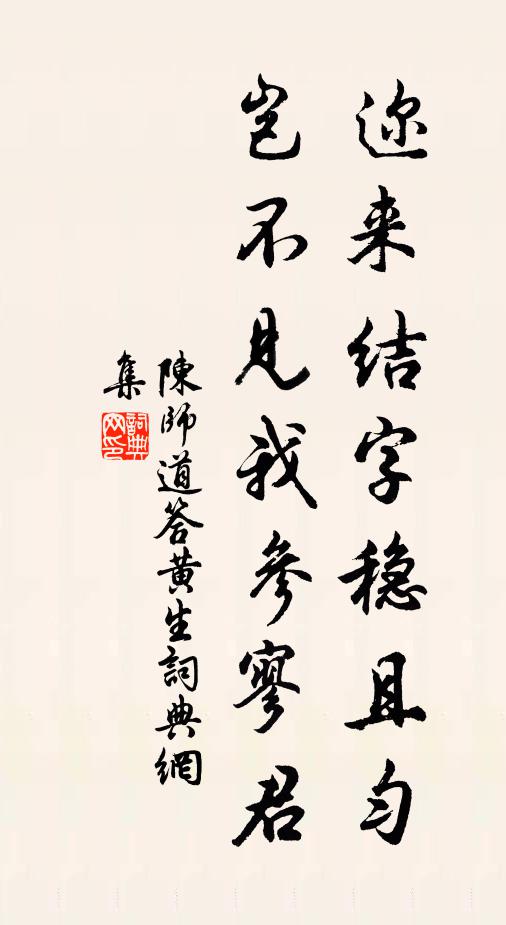 迩来结字稳且匀
岂不见我参寥君
陳師道答黄生詞典網
集
詞典网印